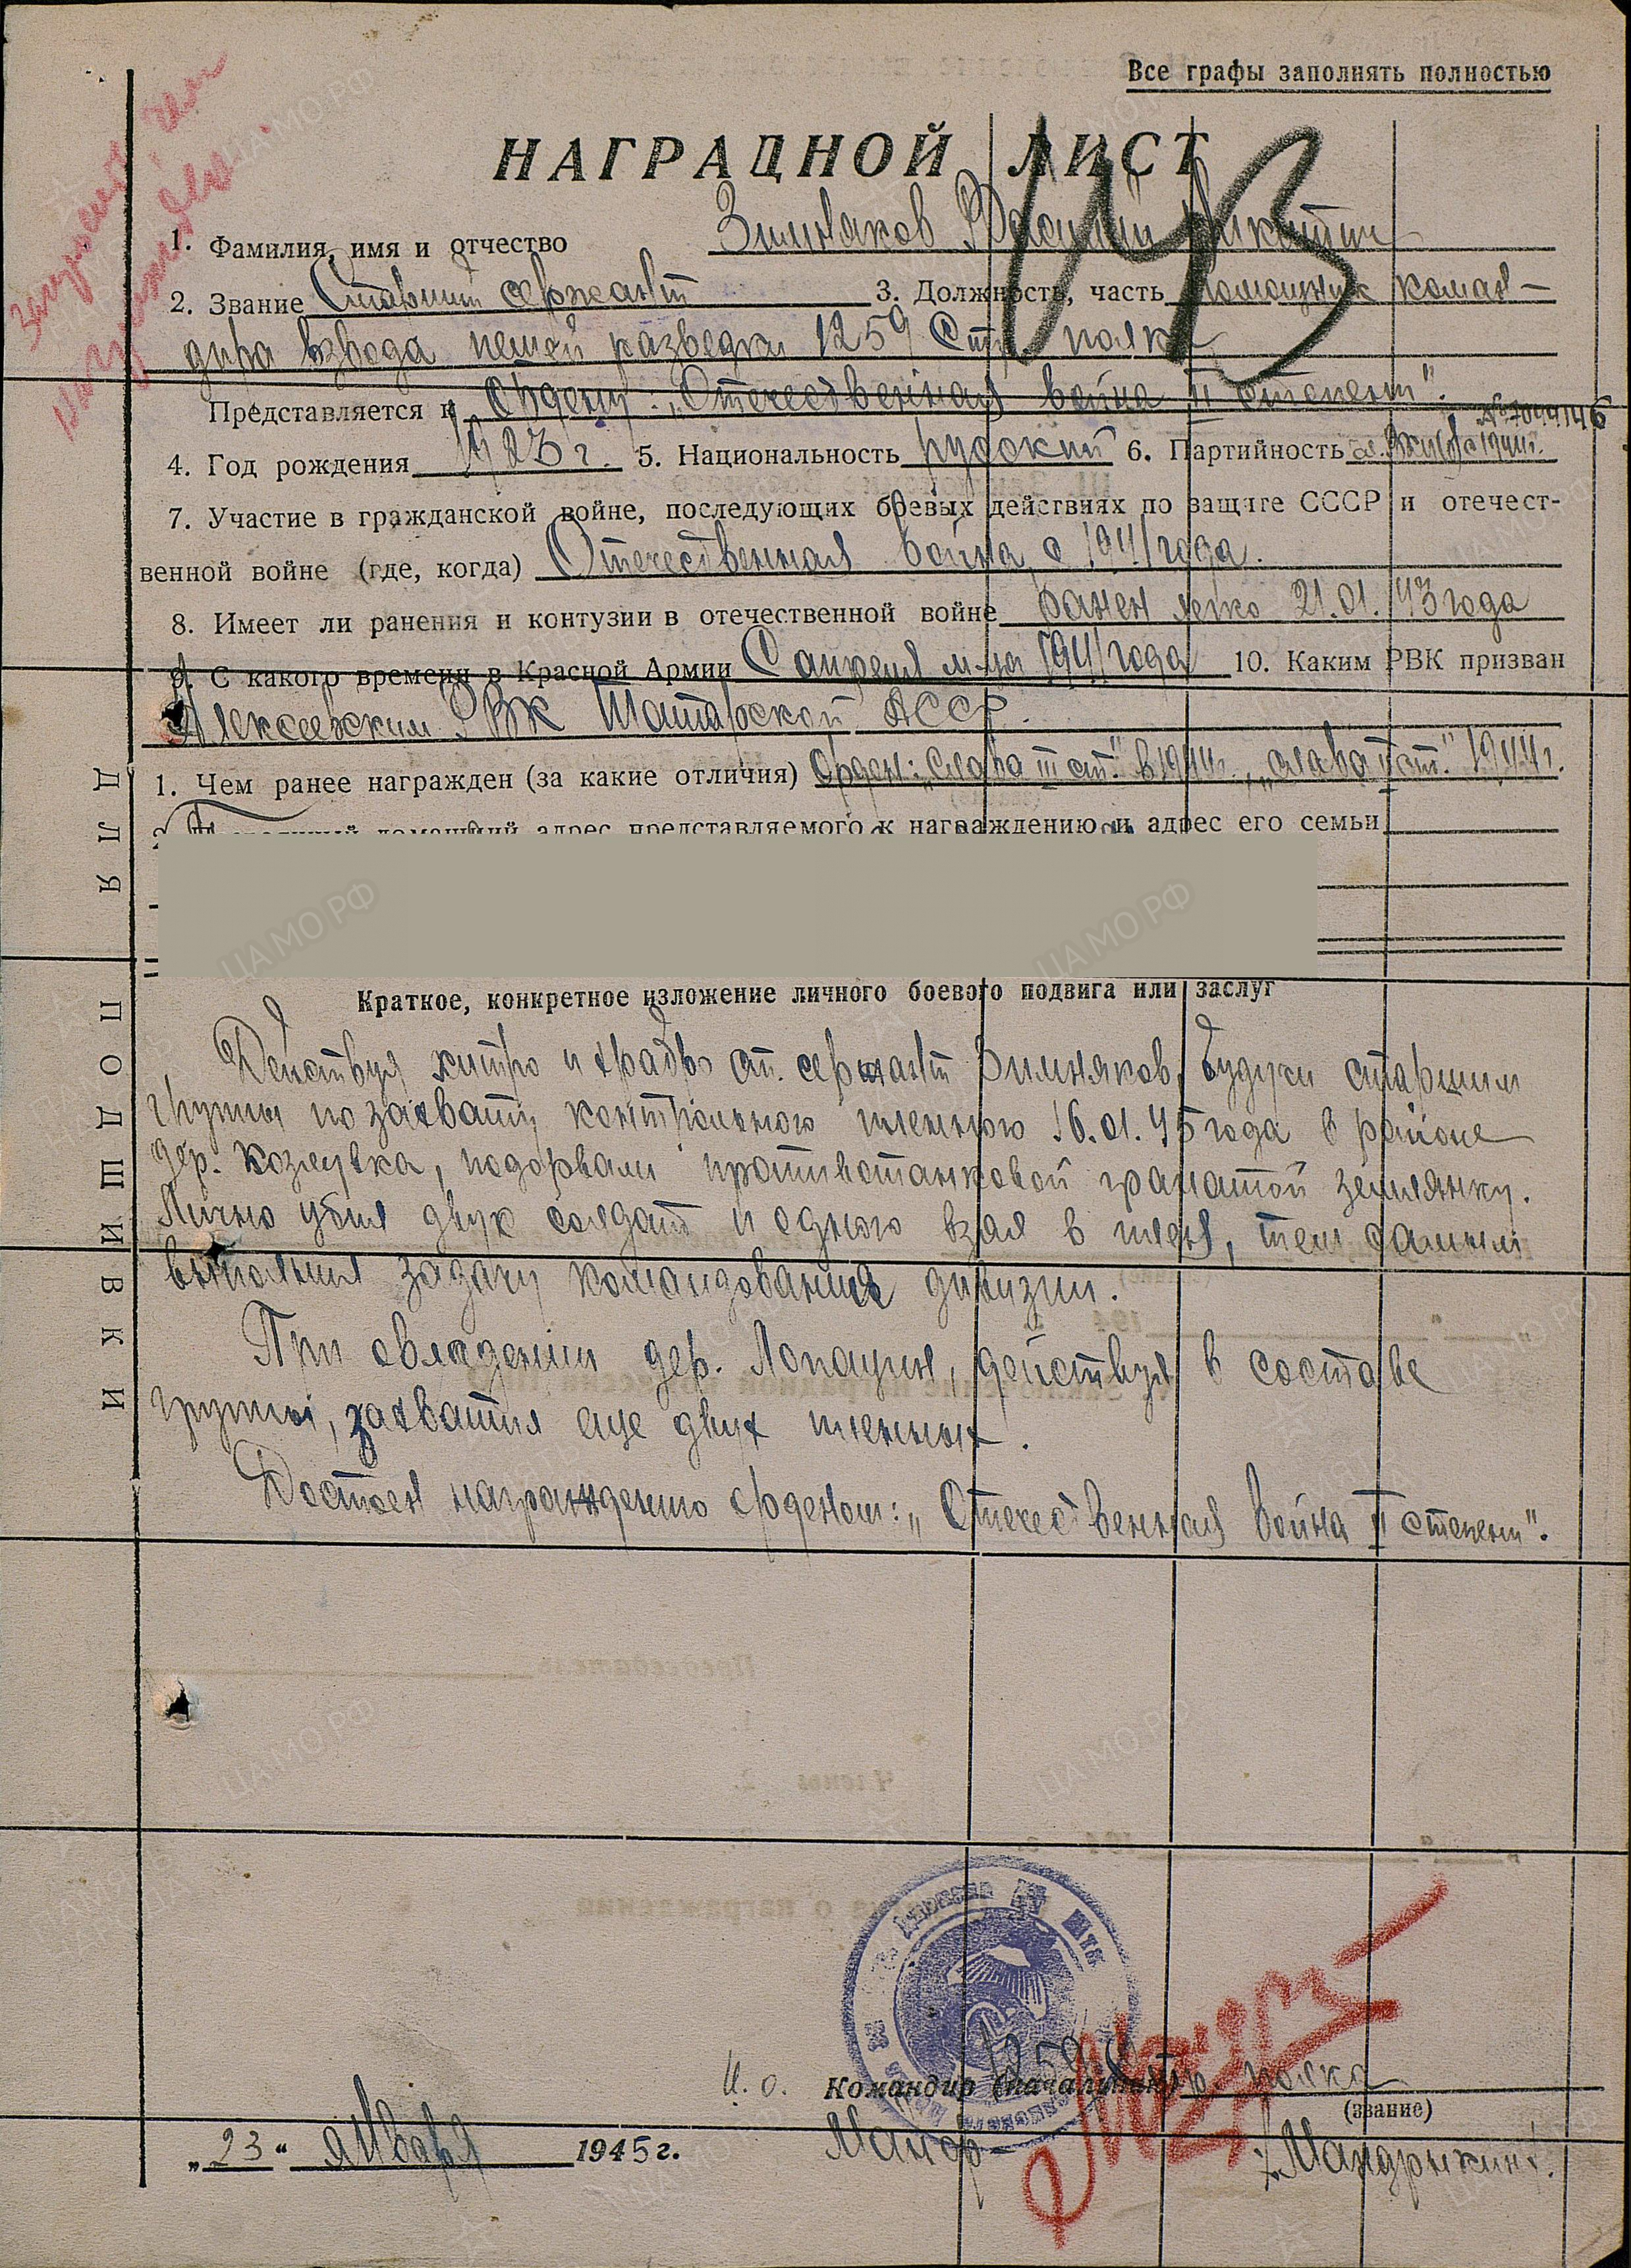 Все графы заполнять полностью
НАГРАДНОЙ ЛИСТ
113
1. Фамилия, имя и отчество Зимняков Василий Никитич
2. Звание Старший сержант 3. Должность, часть помощник коман-
дира взвода пешей разведки 1259 Стр. полка
Представляется к Ордену: „Отечественная война II степени".
4. Год рождения 1923 г. 5. Национальность русский 6. Партийность
7. Участие в гражданской войне, последующих боевых действиях по защите СССР и отечест-
венной войне (где, когда) Отечественная война с 1941 года.
8. Имеет ли ранения и контузии в отечественной войне ранен легко 21.01.43 года
9. С какого времени в Красной Армии С апреля м-ца 1941 года 10. Каким РВК призван
Алексеевским РВК Татарской АССР.
1. Чем ранее награжден (за какие отличия) Орден: „Слава III ст." в 1944г., „Слава II ст." 1944г.
домашний адрес представляемого к награждению и адрес его семьи
Краткое, конкретное изложение личного боевого подвига или заслуг
Действуя хитро и храбро ст. сержант Зимняков, будучи старшим
группы по захвату контрольного пленного 16.01.45 года в районе
дер. Козлувка, подорвали противотанковой гранатой землянку.
Лично убил двух солдат и одного взял в плен, тем самым
выполнил задачу командования дивизии.
При овладении дер. Лопацин, действуя в составе
группы, захватил еще двух пленных.
Достоен награждению орденом: „Отечественная война II степени".
ДЛЯ ПОДШИВКИ
И. о. Командир (начальник) 1259 стр полка
(звание)
Майор /Мандрыкин/.
„23" января 1945 г.
ЦАМО РФ